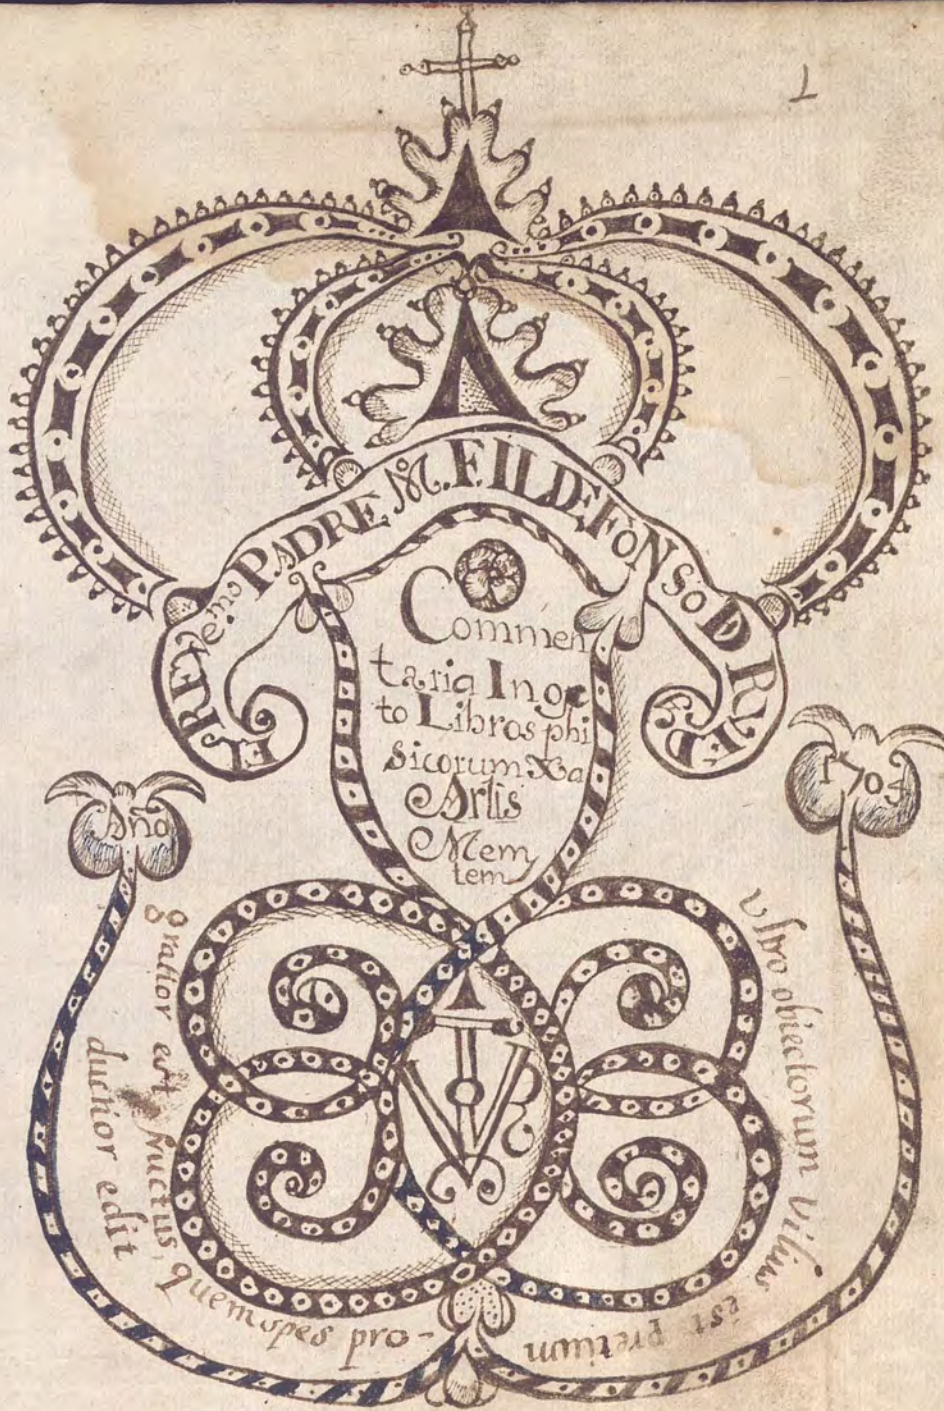 1
EL REVe.mo PADRE M.o F. ILDEFONSO D RVEDA
Commen
taria In oc
to Libros phi
sicorum Xa
Artis
Mem
tem
Año
1704
Gratior est fructus, quem spes pro-
ductior edit
ustro obiectorum vilius est pretium